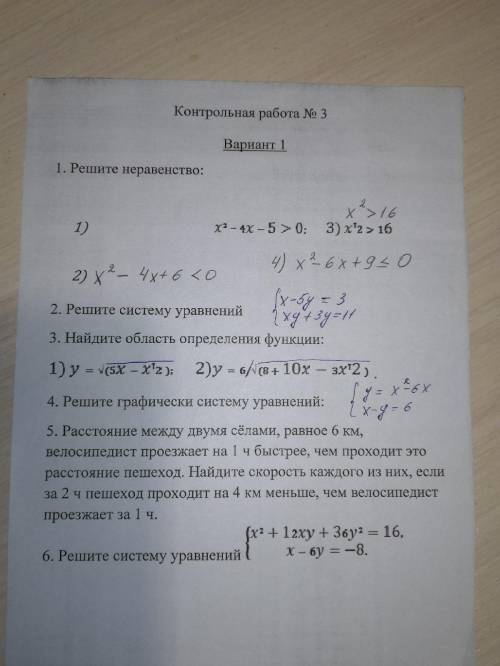 Контрольная работа № 3
Вариант 1
1. Решите неравенство:
x² > 16
1) x² − 4x − 5 > 0; 3) x↑2 > 16
2) x² − 4x + 6 < 0 4) x² − 6x + 9 ≤ 0
2. Решите систему уравнений { x − 5y = 3
xy + 3y = 11
3. Найдите область определения функции:
1) y = √(5x − x↑2 ); 2) y = 6/√(8 + 10x − 3x↑2 ) .
4. Решите графически систему уравнений: { y = x² − 6x
x − y = 6
5. Расстояние между двумя сёлами, равное 6 км,
велосипедист проезжает на 1 ч быстрее, чем проходит это
расстояние пешеход. Найдите скорость каждого из них, если
за 2 ч пешеход проходит на 4 км меньше, чем велосипедист
проезжает за 1 ч.
6. Решите систему уравнений { x² + 12xy + 36y² = 16,
x − 6y = −8.